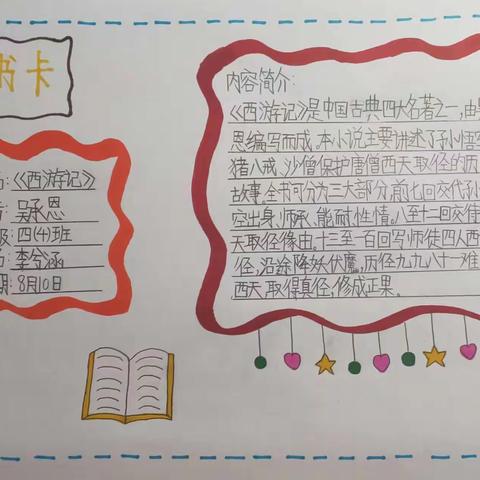 书卡
:《西游记》
吴承恩
级:四(4)班
李令涵
期:8月10日
内容简介:
《西游记》是中国古典四大名著之一,由
恩编写而成。本小说主要讲述了孙悟空
猪八戒、沙僧保护唐僧西天取径的历
故事。全书可分为三大部分,前七回交代孙
空出身、师承、能耐、性情。八至十二回交待
天取径缘由。十三至一百回写师徒四人西
径,沿途降妖伏魔。历径九九八十一难
西天,取得真径,修成正果。